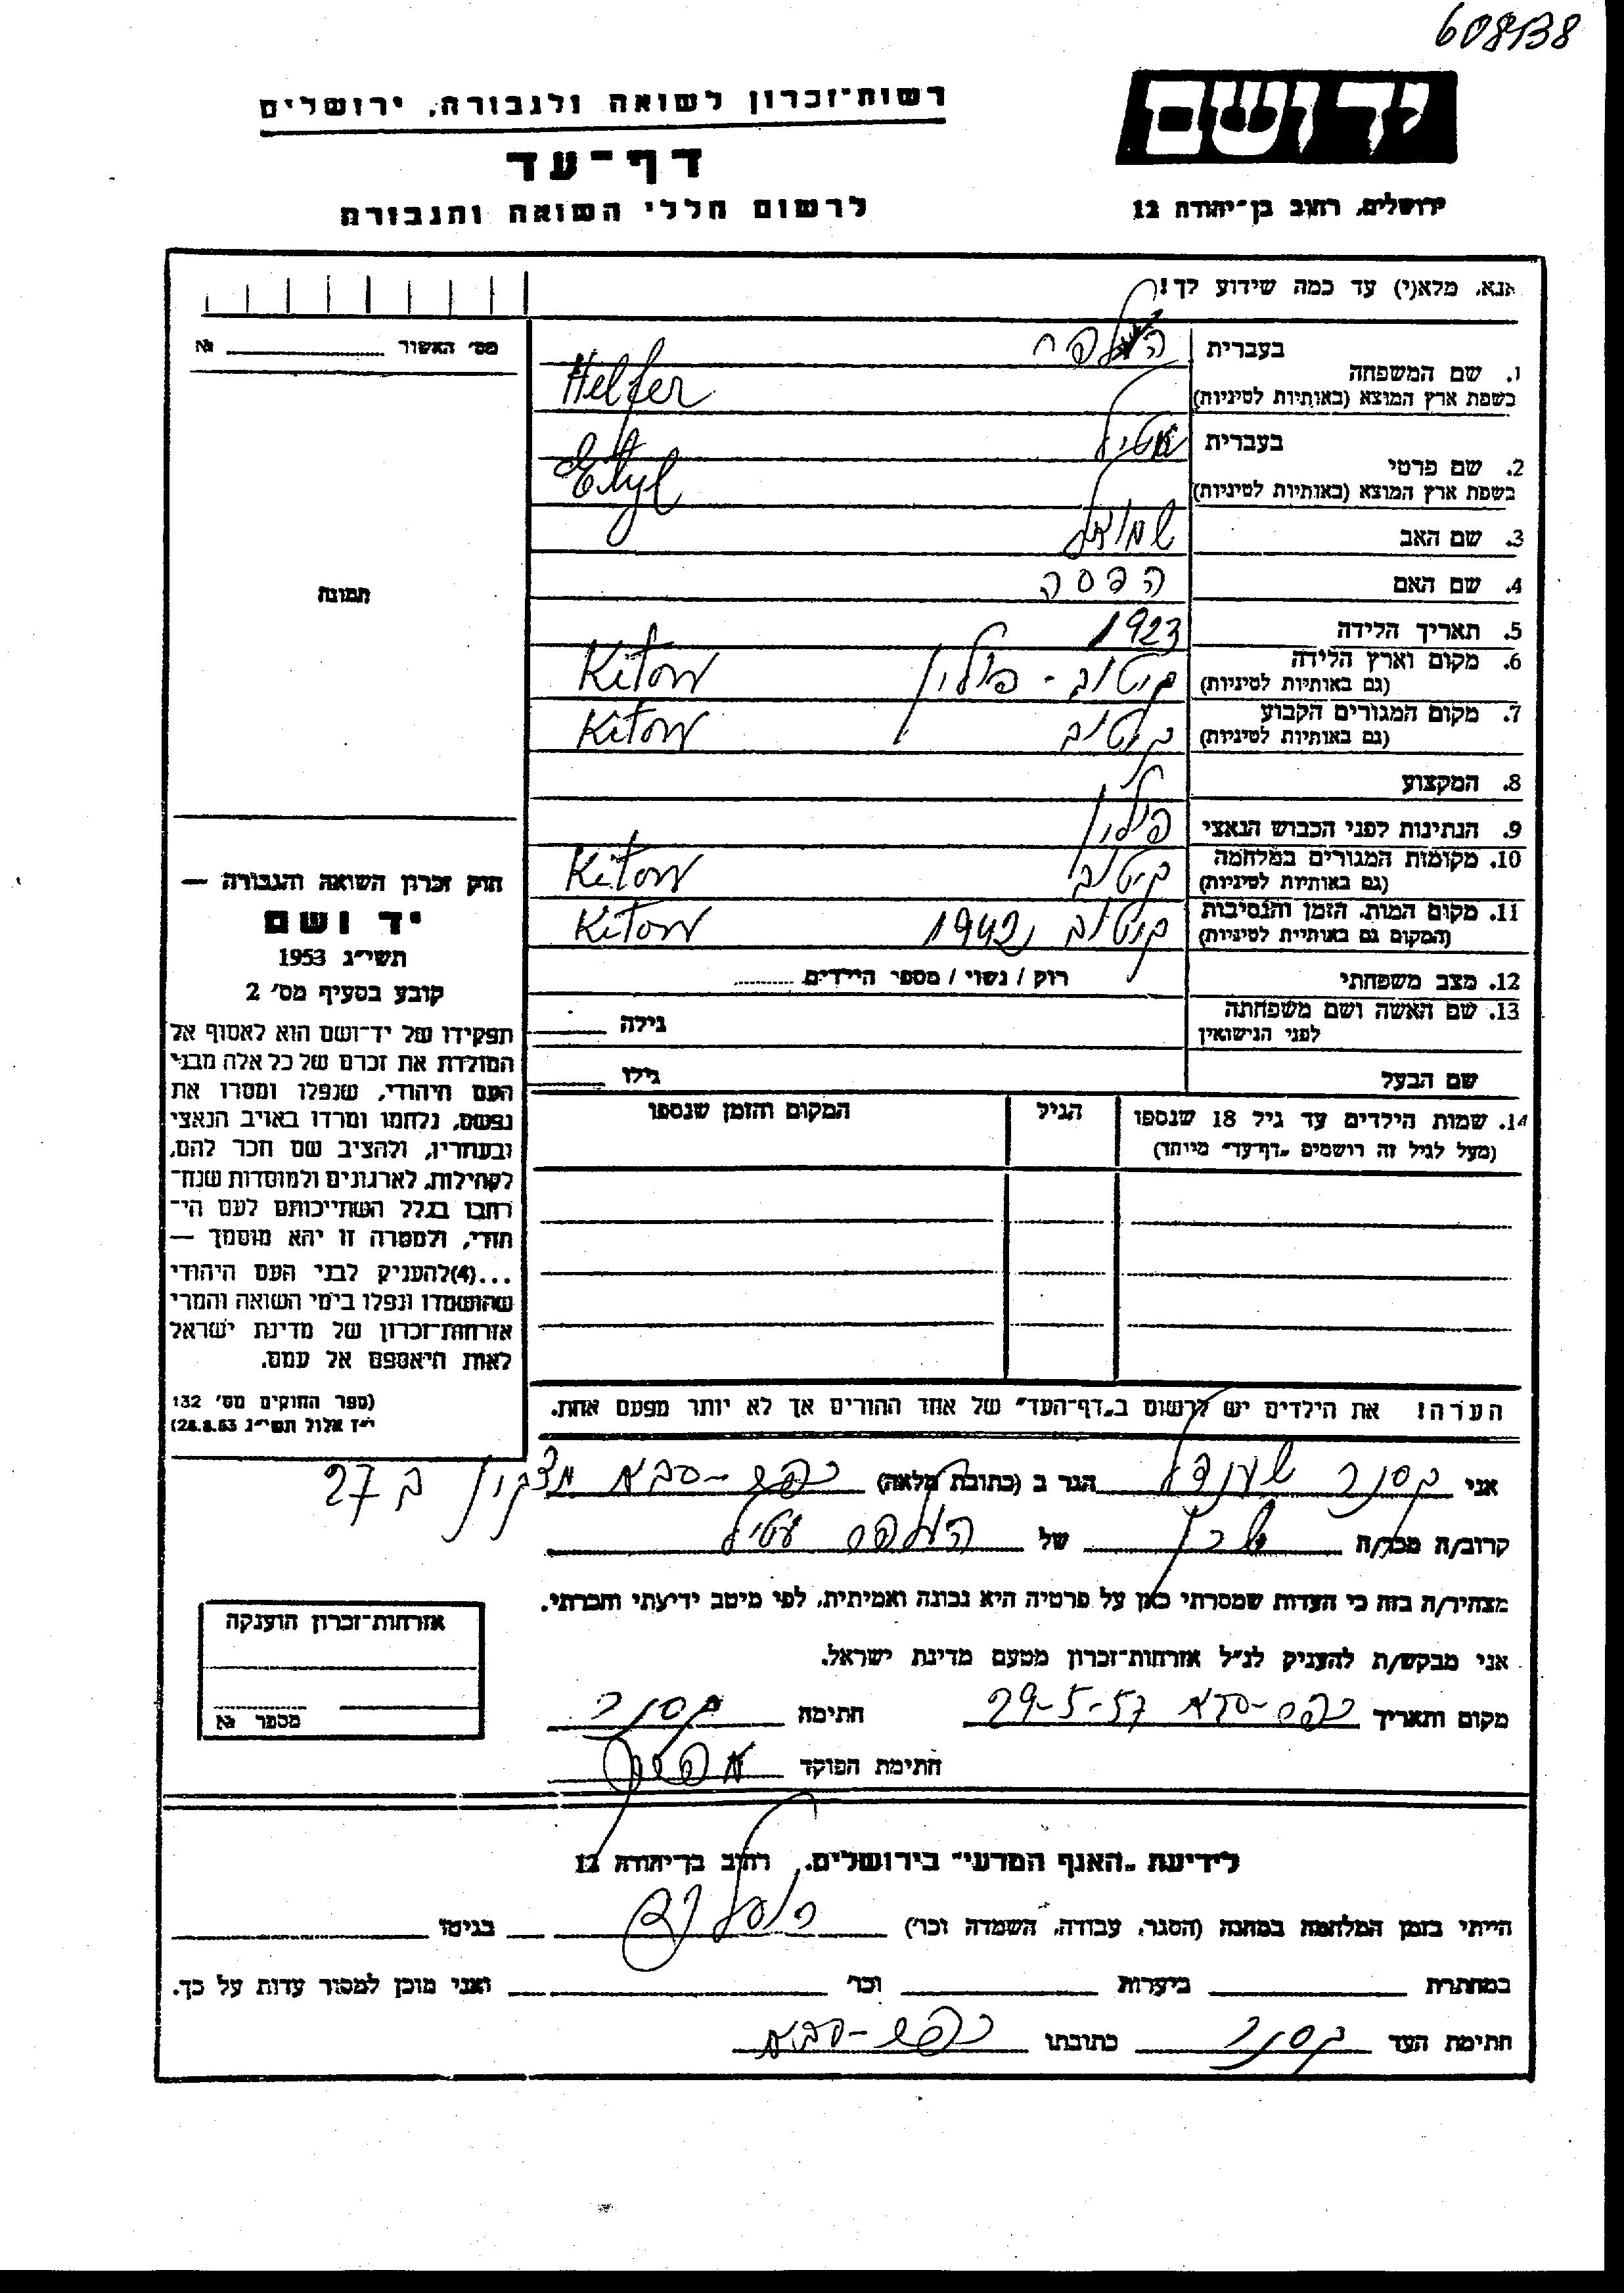 608138
יד ושם
ירושלים, רחוב בן־יהודה 12
רשות־זכרון לשואה ולגבורה, ירושלים
דף־עד
לרשום חללי השואה והגבורה
אנא, מלא(י) עד כמה שידוע לך!
מס׳ האשור №
תמונה
1. שם המשפחה
בעברית
העלפר
בשפת ארץ המוצא (באותיות לטיניות)
Helfer
2. שם פרטי
בעברית
אטיל
בשפת ארץ המוצא (באותיות לטיניות)
Etyl
3. שם האב שמואל
4. שם האם הדסה
5. תאריך הלידה 1923
6. מקום וארץ הלידה קיטוב - פולין Kitow
(גם באותיות לטיניות)
7. מקום המגורים הקבוע קיטוב Kitow
(גם באותיות לטיניות)
8. המקצוע
9. הנתינות לפני הכבוש הנאצי פולין
10. מקומות המגורים במלחמה קיטוב Kitow
(גם באותיות לטיניות)
11. מקום המות, הזמן והנסיבות קיטוב 1942 Kitow
(המקום גם באותיות לטיניות)
12. מצב משפחתי רוק / נשוי / מספר הילדים
13. שם האשה ושם משפחתה
לפני הנישואין
גילה
שם הבעל גילו
14. שמות הילדים עד גיל 18 שנספו
(מעל לגיל זה רושמים „דף־עד״ מיוחד)
הגיל
המקום והזמן שנספו
חוק זכרון השואה והגבורה —
יד ושם
תשי״ג 1953
קובע בסעיף מס׳ 2
תפקידו של יד־ושם הוא לאסוף אל
המולדת את זכרם של כל אלה מבני
העם היהודי, שנפלו ומסרו את
נפשם, נלחמו ומרדו באויב הנאצי
ובעוזריו, ולהציב שם וזכר להם,
לקהילות, לארגונים ולמוסדות שנח־
רבו בגלל השתייכותם לעם היהו־
די, ולמטרה זו יהא מוסמך —
...(4) להעניק לבני העם היהודי
שהושמדו ונפלו בימי השואה והמרי
אזרחות־זכרון של מדינת ישראל
לאות היאספם אל עמם.
(ספר החוקים מס׳ 132
י״ז אלול תשי״ג 28.8.53)
הערה! את הילדים יש לרשום ב„דף־העד״ של אחד ההורים אך לא יותר מפעם אחת.
אני קסנר הגר ב (כתובת מלאה) כפר-סבא ב 27
קרוב/ה מכר/ה שכן של העלפר עטיל
מצהיר/ה בזה כי העדות שמסרתי כאן על פרטיה היא נכונה ואמיתית, לפי מיטב ידיעתי והכרתי.
אני מבקש/ת להעניק לנ״ל אזרחות־זכרון מטעם מדינת ישראל.
מקום ותאריך כפר-סבא 29-5-57 חתימה קסנר
חתימת הפוקד
אזרחות־זכרון הוענקה
מספר №
לידיעת „האגף המדעי״ בירושלים, רחוב בן־יהודה 12
הייתי בזמן המלחמה במחנה (הסגר, עבודה, השמדה וכר׳) בגיטו
במחתרת ביערות וכר׳ ואני מוכן למסור עדות על כך.
חתימת העד קסנר כתובתו כפר-סבא